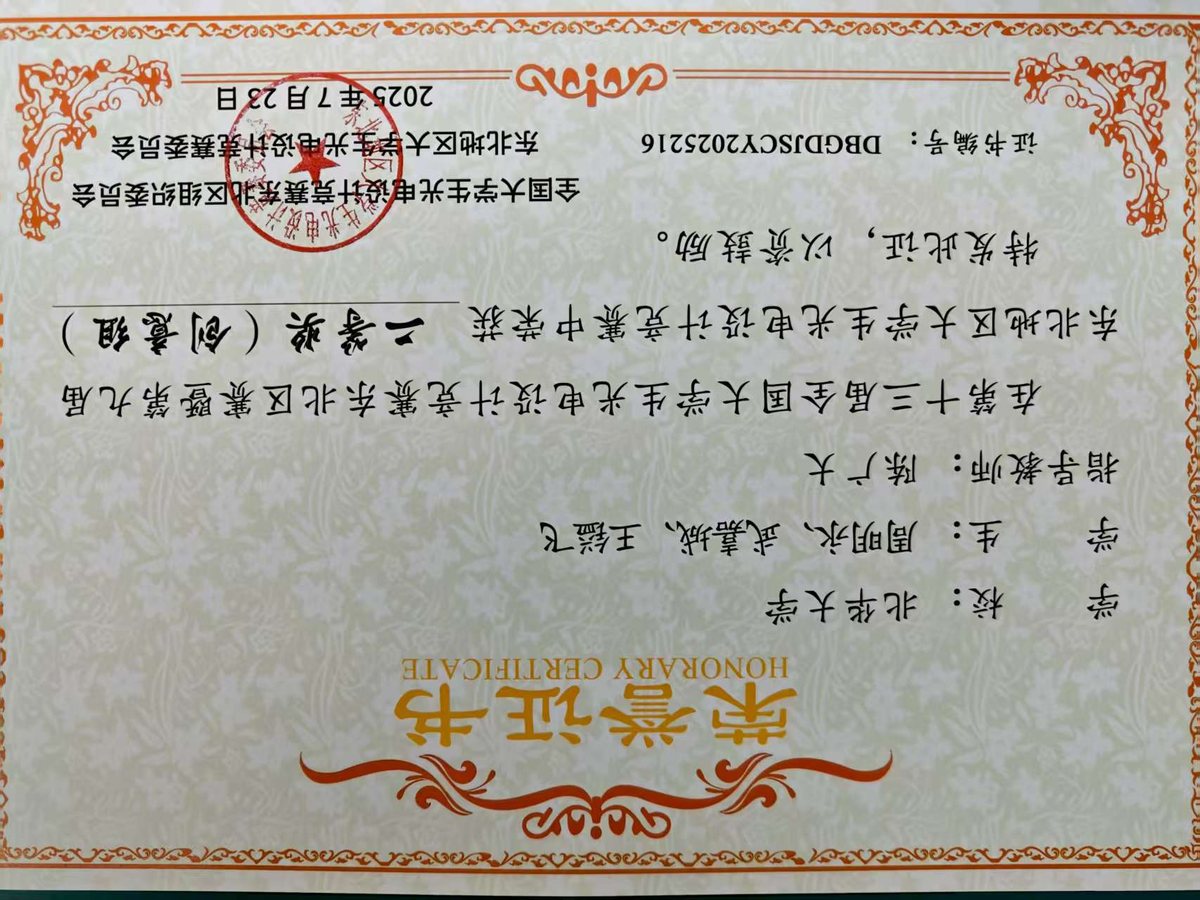 荣誉证书
HONORARY CERTIFICATE
学 校：北华大学
学 生：周明永、武嘉城、王镒飞
指导教师：陈广大
在第十三届全国大学生光电设计竞赛东北区赛暨第九届
东北地区大学生光电设计竞赛中荣获 二等奖（创意组）
特发此证，以资鼓励。
全国大学生光电设计竞赛东北区组织委员会
证书编号：DBGDJSCY2025216 东北地区大学生光电设计竞赛委员会
2025年7月23日